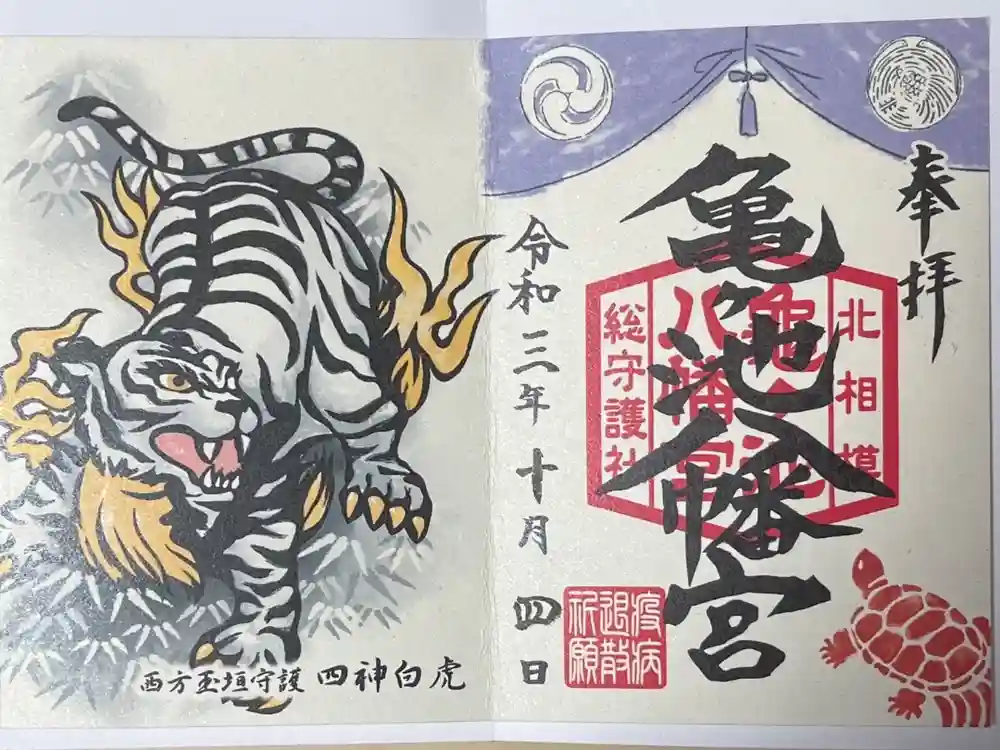 奉拝
北相模
亀ヶ池
八幡宮
総守護社
亀ヶ池八幡宮
疫病
退散
祈願
令和三年十月四日
西方玉垣守護 四神白虎